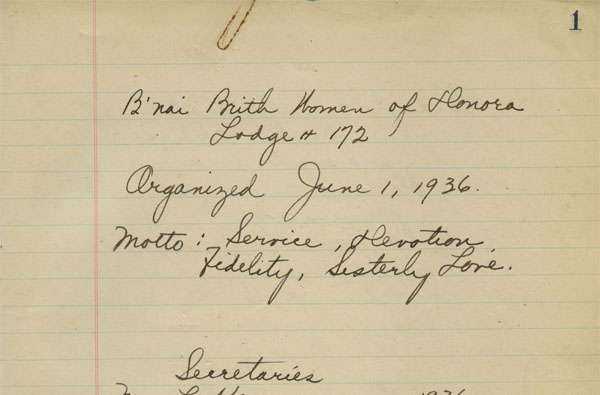 1
B'nai Brith Women of Honora
Lodge # 172
Organized June 1, 1936.
Motto: Service, Devotion,
Fidelity, Sisterly Love.
Secretaries
1936